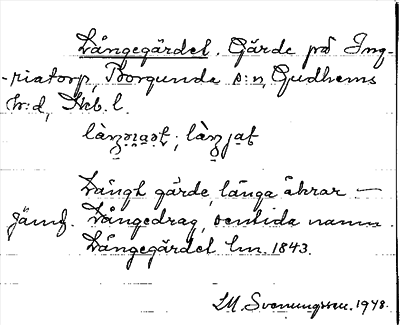 Långegärdet. Gärde på Ing-
-riatorp, Borgunda s:n, Gudhems
h:d, Skb. l.
Långh gärde, långa åkrar —
jämf. Långedrag, ventida namn.
Långegärdet lm. 1843.
LM. Svenungsson. 1948.